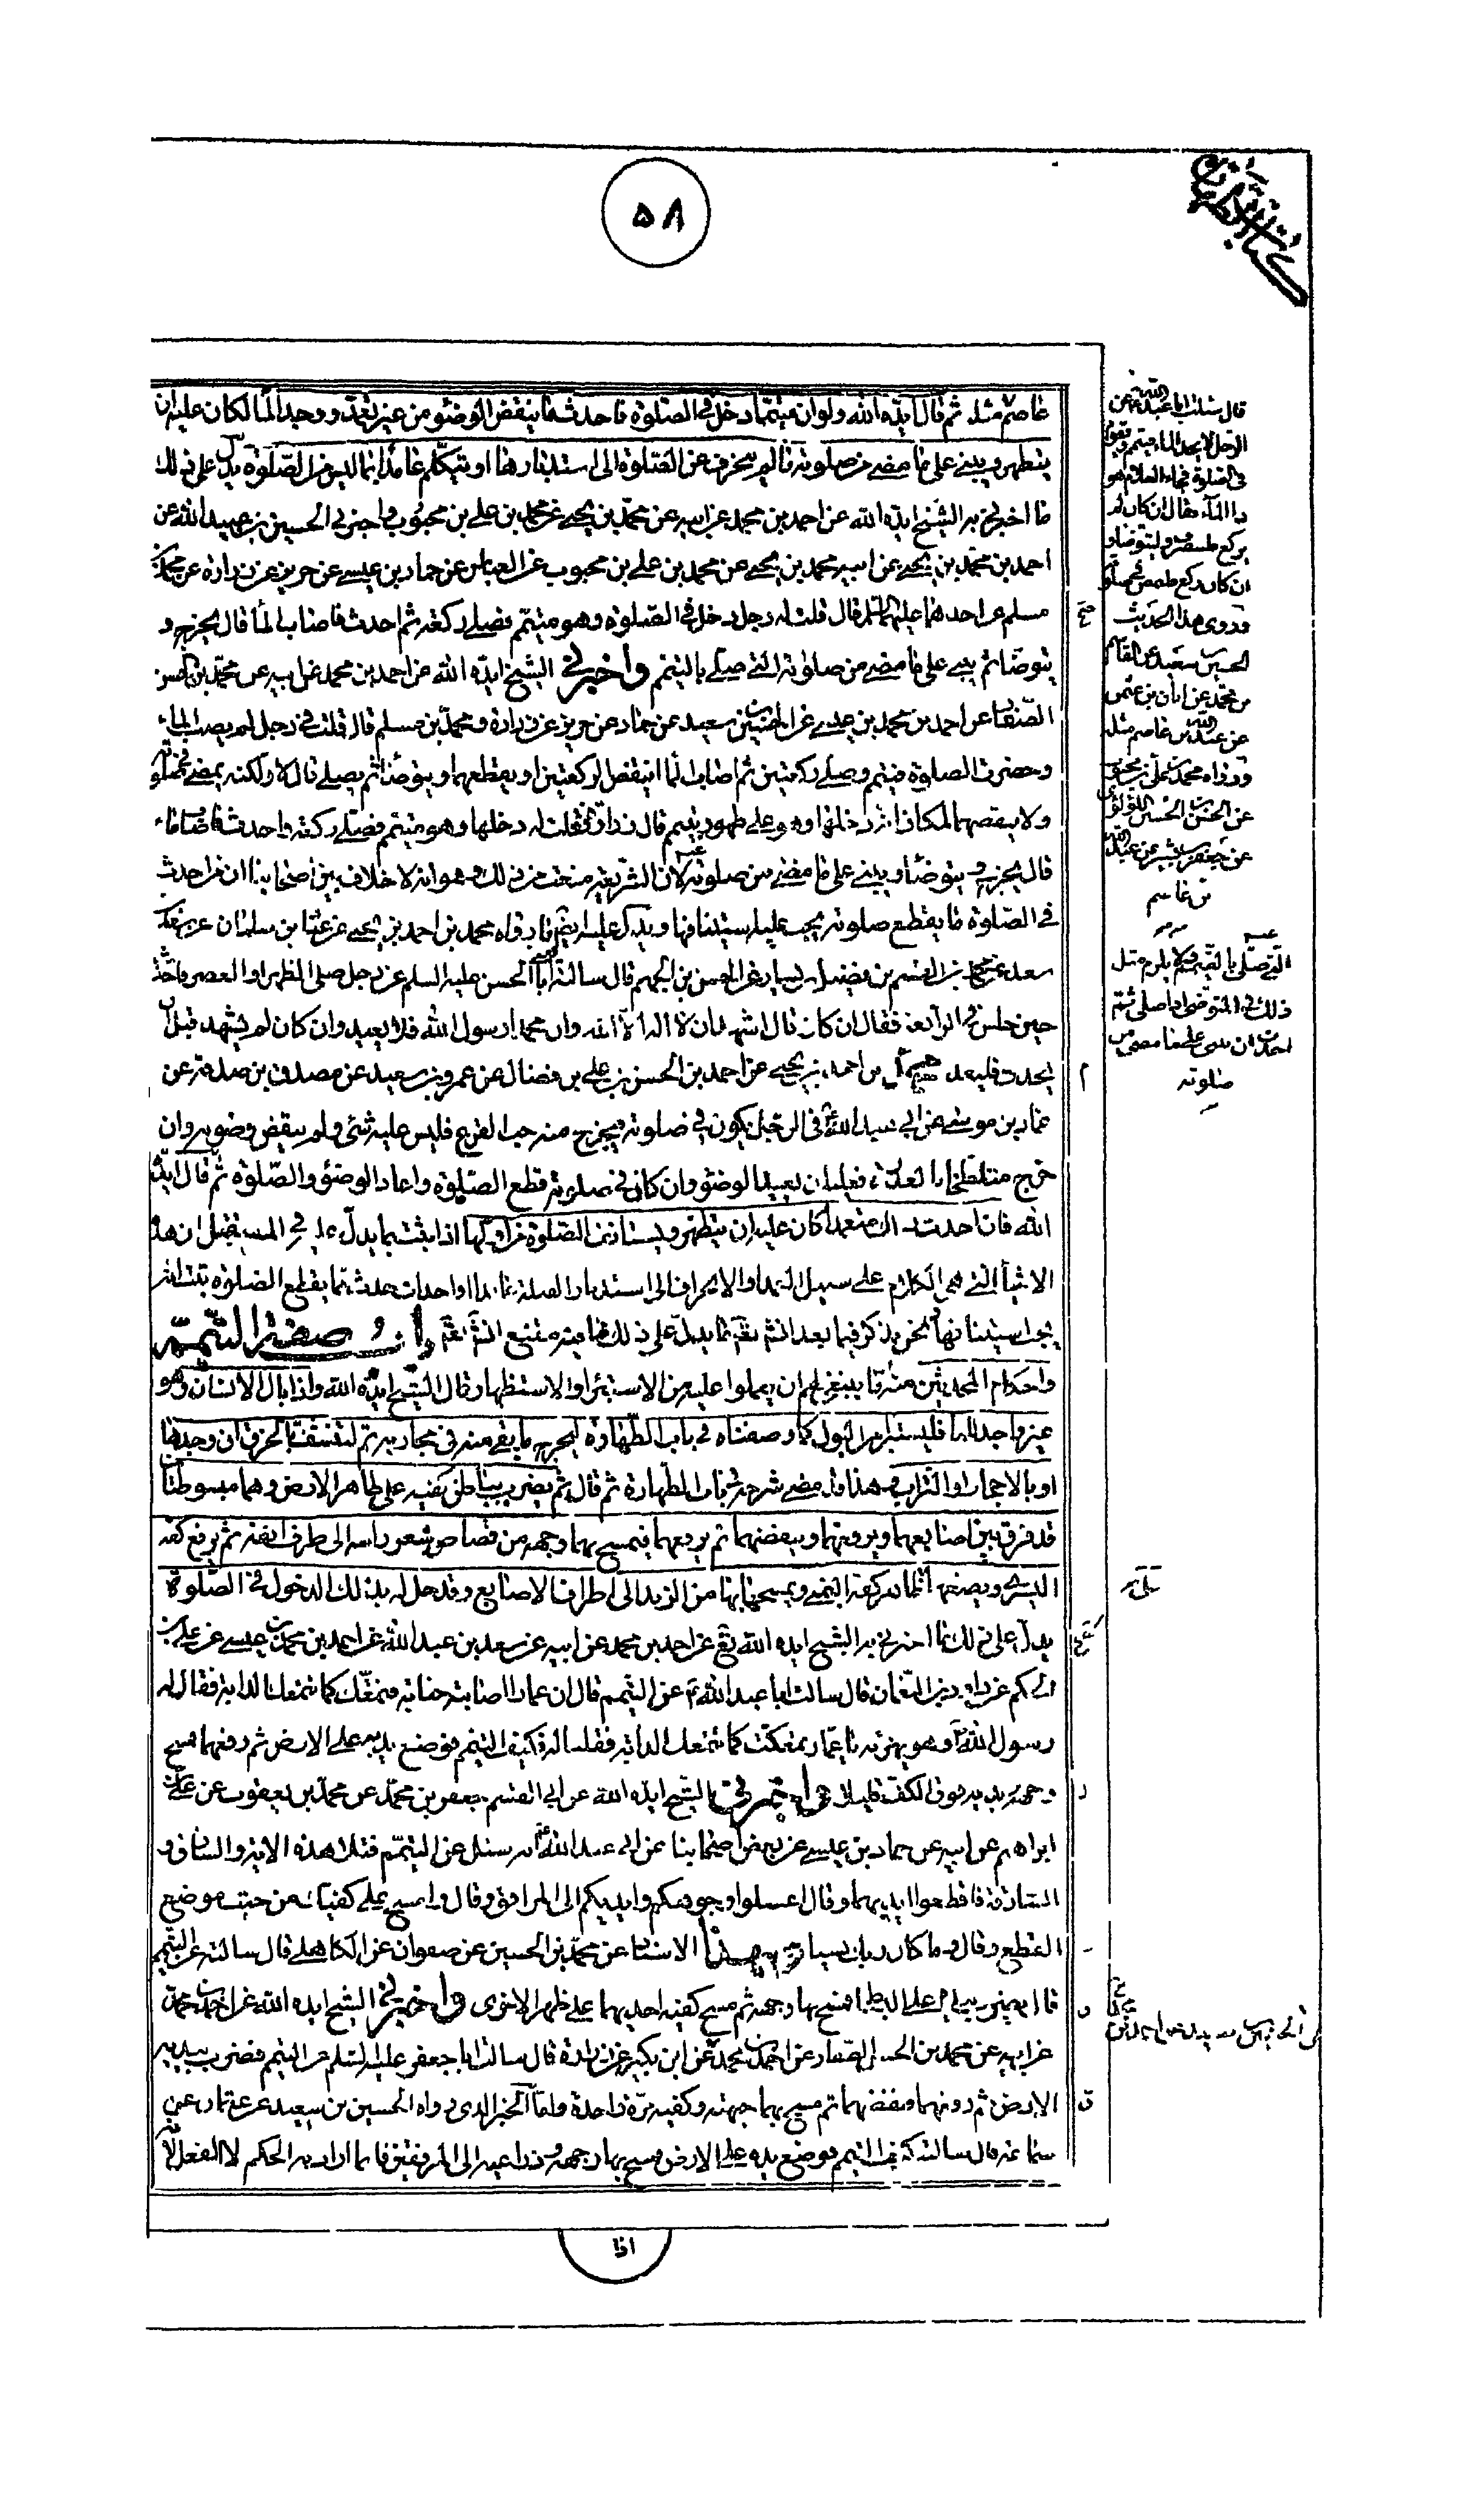 كتاب الطهارة
٥٨
عاصم مثله ثم قال ايده الله ولو ان متيمما دخل في الصلوة فاحدث ما ينقض الوضوء من غير تعمد ووجد الماء لكان عليه ان
يتطهر ويبني على ما مضى من صلوته ما لم ينحرف عن القبلة الى استدبارها او يتكلم عامدا بما ليس من الصلوة يدل على ذلك
ما اخبرني به الشيخ ايده الله عن احمد بن محمد عن ابيه عن محمد بن يحيى عن محمد بن علي بن محبوب واخبرني الحسين بن عبيد الله عن
احمد بن محمد بن يحيى عن ابيه محمد بن يحيى عن محمد بن علي بن محبوب عن العباس عن حماد بن عيسى عن حريز عن زرارة عن محمد بن
مسلم عن احدهما عليهما السلم قال قلت له رجل دخل في الصلوة وهو متيمم فصلى ركعة ثم احدث فاصاب الماء قال يخرج و
يتوضا ثم يبني على ما مضى من صلوته التي صلى بالتيمم واخبرني الشيخ ايده الله عن احمد بن محمد عن ابيه عن محمد بن الحسن
الصفار عن احمد بن محمد بن عيسى عن الحسين بن سعيد عن حماد عن حريز عن زرارة ومحمد بن مسلم قال قلت في رجل لم يصب الماء
وحضرت الصلوة فتيمم وصلى ركعتين ثم اصاب الماء اينقض الركعتين او يقطعهما ويتوضا ثم يصلي قال لا ولكنه يمضي في صلوته
ولا ينقضهما لمكان انه دخلها وهو على طهور بتيمم قال زرارة فقلت له دخلها وهو متيمم فصلى ركعة واحدث فاصاب ماء
قال يخرج ويتوضا ويبني على ما مضى من صلوته لان الشريعة منعت من ذلك وهو انه لا خلاف بين اصحابنا ان من احدث
في الصلوة ما يقطع صلوته يجب عليه استينافها ويدل عليه ايضا ما رواه محمد بن احمد بن يحيى عن عباد بن سليمان عن
سعد بن محمد بن القسم بن فضيل بن يسار عن الحسن بن الجهم قال سالته اباالحسن عليه السلم عن رجل صلى الظهر او العصر فاحدث
حين جلس في الرابعة فقال ان كان قال اشهد ان لا اله الا الله وان محمدا رسول الله فلا يعيد وان كان لم يتشهد قبل ان
يحدث فليعد محمد بن احمد بن يحيى عن احمد بن الحسن بن علي بن فضال عن عمرو بن سعيد عن مصدق بن صدقة عن
عمار بن موسى عن ابي عبد الله في الرجل يكون في صلوته فيخرج منه حب القرع فليس عليه شئ ولم ينقض وضوءه وان
خرج متلطخا بالعذرة فعليه ان يعيد الوضوء وان كان في صلوته قطع الصلوة واعاد الوضوء والصلوة ثم قال ايده
الله فان احدث ذلك متعمدا كان عليه ان يتطهر ويستانف الصلوة من اولها اذا يثبت بما يدل عليه في المستقبل ان هذه
الاشياء التي هي الكلام على سبيل العمد او الانحراف الى استدبار القبلة عامدا او احداث حدث مما يقطع الصلوة يثبت انه
يجب استينافها نحن نذكر فيما بعد انشاء الله تعالى ما يدل على ذلك بما فيه مقنع انشاء الله تعالى باب صفة التيمم
واحكام المحدثين منه وما ينبغي لهم ان يعملوا عليه من الاستبراء والاستظهار قال الشيخ ايده الله واذا بال الانسان وهو
غير واجد للماء فليستبرئ من البول كما وصفناه في باب الطهارة ليخرج ما بقي منه في مجاريه ثم ليتنشف بالخرق ان وجدها
او بالاحجار او التراب وهذا قد مضى شرحه في باب الطهارة ثم قال ثم يضرب بباطن كفيه على ظاهر الارض وهما مبسوطتان
قد فرق بين اصابعهما ويرفعهما وينفضهما ثم يرفعهما فيمسح بهما وجهه من قصاص شعر راسه الى طرف انفه ثم يرفع كفه
اليسرى ويضعها على ظاهر كفه اليمنى ويمسحها بها من الزند الى اطراف الاصابع وقد حل له بذلك الدخول في الصلوة
يدل على ذلك ما اخبرني به الشيخ ايده الله تع عن احمد بن محمد عن ابيه عن سعد بن عبد الله عن احمد بن محمد بن عيسى عن علي بن
الحكم عن داود بن النعمان قال سالت ابا عبد الله ع عن التيمم قال ان عمارا اصابته جنابة فتمعك كما تتمعك الدابة فقال له
رسول الله ص وهو يهزء به يا عمار تمعكت كما تتمعك الدابة فقلنا له فكيف التيمم فوضع يديه على الارض ثم رفعهما فمسح
وجهه ويديه فوق الكف قليلا واخبرني الشيخ ايده الله عن ابي القسم جعفر بن محمد عن محمد بن يعقوب عن علي بن
ابراهيم عن ابيه عن حماد بن عيسى عن بعض اصحابنا عن ابي عبد الله ع انه سئل عن التيمم فتلا هذه الاية والسارق و
السارقة فاقطعوا ايديهما وقال اغسلوا وجوهكم وايديكم الى المرافق وقال وامسح على كفيك من حيث موضع
القطع وقال وما كان ربك نسيا وبهذا الاسناد عن محمد بن الحسين عن صفوان عن الكاهلي قال سالته عن التيمم
قال فضرب بيده على البساط فمسح بها وجهه ثم مسح كفيه احديهما على ظهر الاخرى واخبرني الشيخ ايده الله عن احمد بن محمد
عن ابيه عن محمد بن الحسن الصفار عن احمد بن محمد عن ابن بكير عن زرارة قال سالت ابا جعفر عليه السلم عن التيمم فضرب بيديه
الارض ثم رفعهما ونفضهما ثم مسح بهما جبهته وكفيه مرة واحدة واما الخبر الذي رواه الحسين بن سعيد عن عثمان عن
سماعة قال سالته كيف التيمم فوضع يده على الارض ومسح بها وجهه وذراعيه الى المرفقين فانما اراد به الحكم لا الفعل لانه
قال سئلت ابا عبد الله عن
الرجل لا يجد الماء فيتيمم ويقوم
في الصلوة فجاء الغلام هو
ذا الماء فقال ان كان لم
يركع فلينصرف وليتوضا و
ان كان ركع فليمض في صلوته
وروى هذا الحديث
الحسين بن سعيد عن القاسم
بن محمد عن ابان بن عثمن
عن عبد الله بن عاصم مثله
ورواه محمد بن علي بن محبوب
عن الحسن بن الحسين اللؤلؤى
عن جعفر بن بشير عن عبد الله
بن عاصم
التي صلى بالتيمم ولا يلزم مثل
ذلك في المتوضى اذا صلى ثم
احدث ان يبنى على ما مضى من
صلوته
اذا